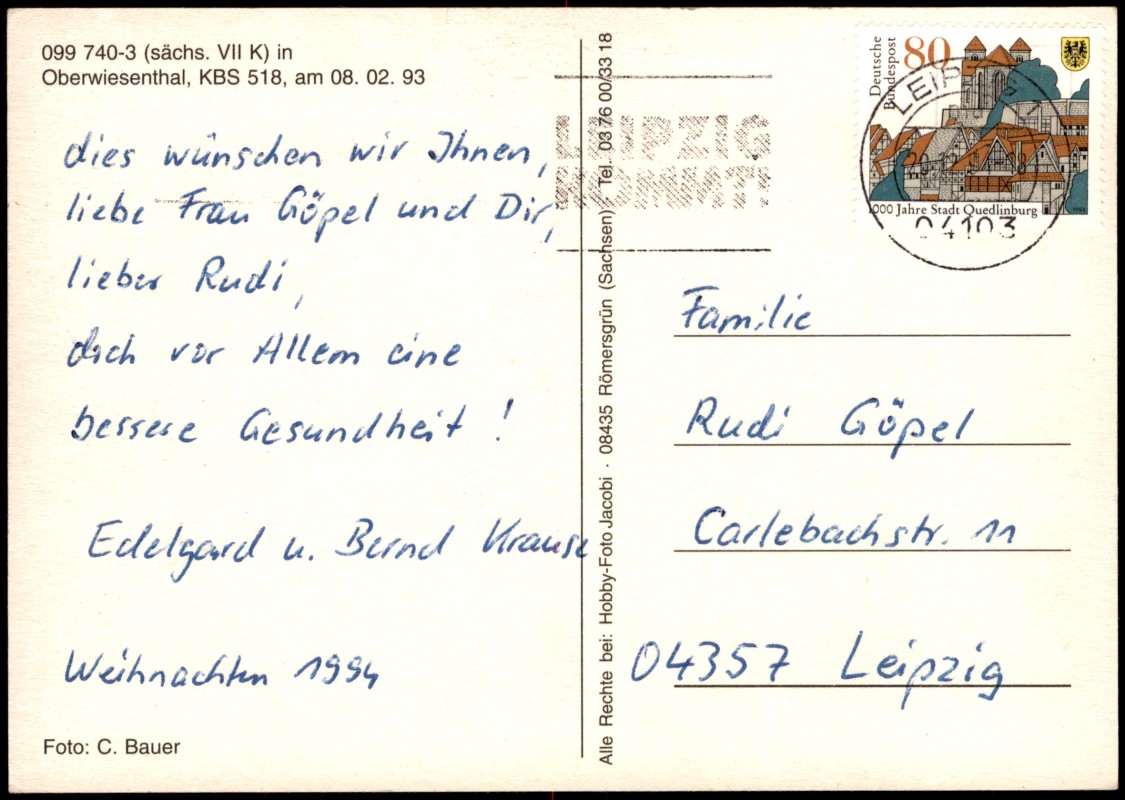 099 740-3 (sächs. VII K) in
Oberwiesenthal, KBS 518, am 08. 02. 93
dies wünschen wir Ihnen,
liebe Frau Göpel und Dir,
lieber Rudi,
dich vor Allem eine
bessere Gesundheit!
Edelgard u. Bernd Krause
Weihnachten 1994
Foto: C. Bauer
Alle Rechte bei: Hobby-Foto Jacobi · 08435 Römersgrün (Sachsen), Tel. 0376 00/33 18
LEIPZIG
KOMMT!
Deutsche
Bundespost
80
1000 Jahre Stadt Quedlinburg
1994
LEIPZIG
04103
Familie
Rudi Göpel
Carlebachstr. 11
04357 Leipzig